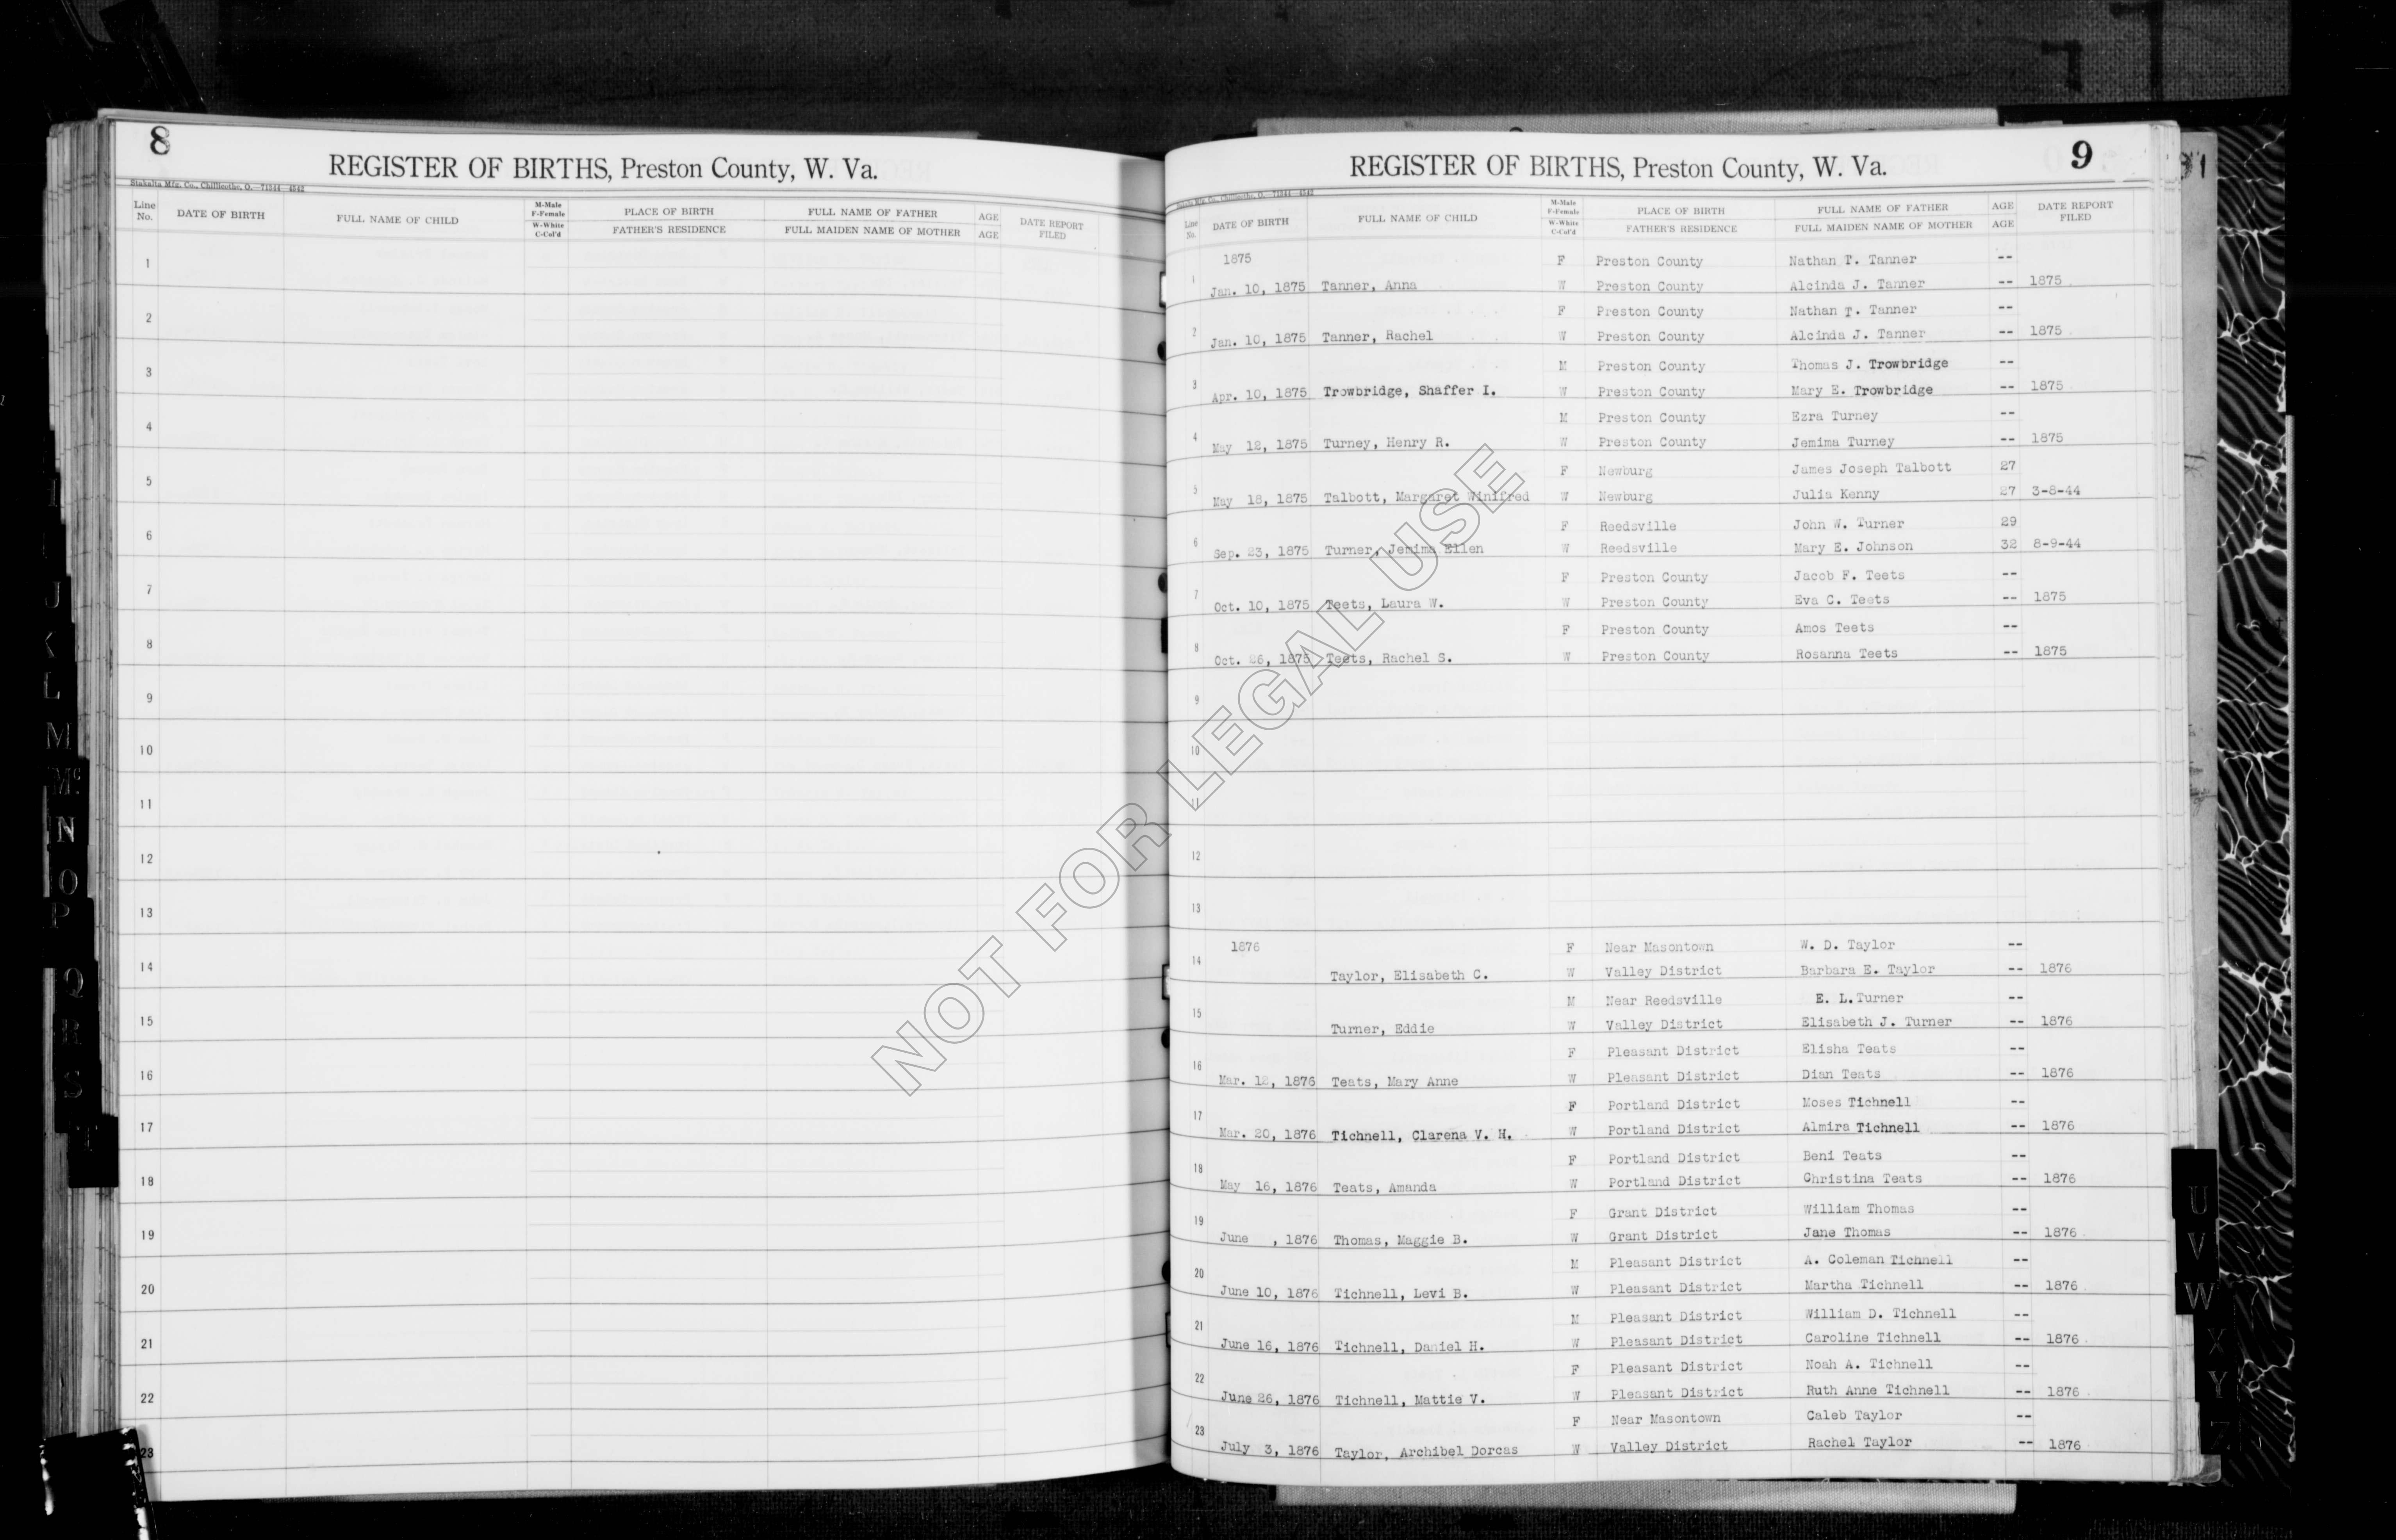 8
REGISTER OF BIRTHS, Preston County, W. Va.
Line No. DATE OF BIRTH FULL NAME OF CHILD M-Male F-Female W-White C-Col'd PLACE OF BIRTH FATHER'S RESIDENCE FULL NAME OF FATHER FULL MAIDEN NAME OF MOTHER AGE AGE DATE REPORT FILED
1
2
3
4
5
6
7
8
9
10
11
12
13
14
15
16
17
18
19
20
21
22
23
9
REGISTER OF BIRTHS, Preston County, W. Va.
Line No. DATE OF BIRTH FULL NAME OF CHILD M-Male F-Female W-White C-Col'd PLACE OF BIRTH FATHER'S RESIDENCE FULL NAME OF FATHER FULL MAIDEN NAME OF MOTHER AGE AGE DATE REPORT FILED
1875 F Preston County Nathan T. Tanner --
1 Jan. 10, 1875 Tanner, Anna W Preston County Alcinda J. Tanner -- 1875
F Preston County Nathan T. Tanner --
2 Jan. 10, 1875 Tanner, Rachel W Preston County Alcinda J. Tanner -- 1875
M Preston County Thomas J. Trowbridge --
3 Apr. 10, 1875 Trowbridge, Shaffer I. W Preston County Mary E. Trowbridge -- 1875
M Preston County Ezra Turney --
4 May 12, 1875 Turney, Henry R. W Preston County Jemima Turney -- 1875
F Newburg James Joseph Talbott 27
5 May 18, 1875 Talbott, Margaret Winifred W Newburg Julia Kenny 27 3-8-44
F Reedsville John W. Turner 29
6 Sep. 23, 1875 Turner, Jemima Ellen W Reedsville Mary E. Johnson 32 8-9-44
F Preston County Jacob F. Teets --
7 Oct. 10, 1875 Teets, Laura W. W Preston County Eva C. Teets -- 1875
F Preston County Amos Teets --
8 Oct. 26, 1875 Teets, Rachel S. W Preston County Rosanna Teets -- 1875
9
10
11
12
13
1876 F Near Masontown W. D. Taylor --
14 Taylor, Elisabeth C. W Valley District Barbara E. Taylor -- 1876
M Near Reedsville E. L. Turner --
15 Turner, Eddie W Valley District Elisabeth J. Turner -- 1876
F Pleasant District Elisha Teats --
16 Mar. 12, 1876 Teats, Mary Anne W Pleasant District Dian Teats -- 1876
F Portland District Moses Tichnell --
17 Mar. 20, 1876 Tichnell, Clarena V. H. W Portland District Almira Tichnell -- 1876
F Portland District Beni Teats --
18 May 16, 1876 Teats, Amanda W Portland District Christina Teats -- 1876
F Grant District William Thomas --
19 June , 1876 Thomas, Maggie B. W Grant District Jane Thomas -- 1876
M Pleasant District A. Coleman Tichnell --
20 June 10, 1876 Tichnell, Levi B. W Pleasant District Martha Tichnell -- 1876
M Pleasant District William D. Tichnell --
21 June 16, 1876 Tichnell, Daniel H. W Pleasant District Caroline Tichnell -- 1876
F Pleasant District Noah A. Tichnell --
22 June 26, 1876 Tichnell, Mattie V. W Pleasant District Ruth Anne Tichnell -- 1876
F Near Masontown Caleb Taylor --
23 July 3, 1876 Taylor, Archibel Dorcas W Valley District Rachel Taylor -- 1876
NOT FOR LEGAL USE
J
K
L
M
Mc
N
O
P
Q
R
S
T
U
V
W
X
Y
Z